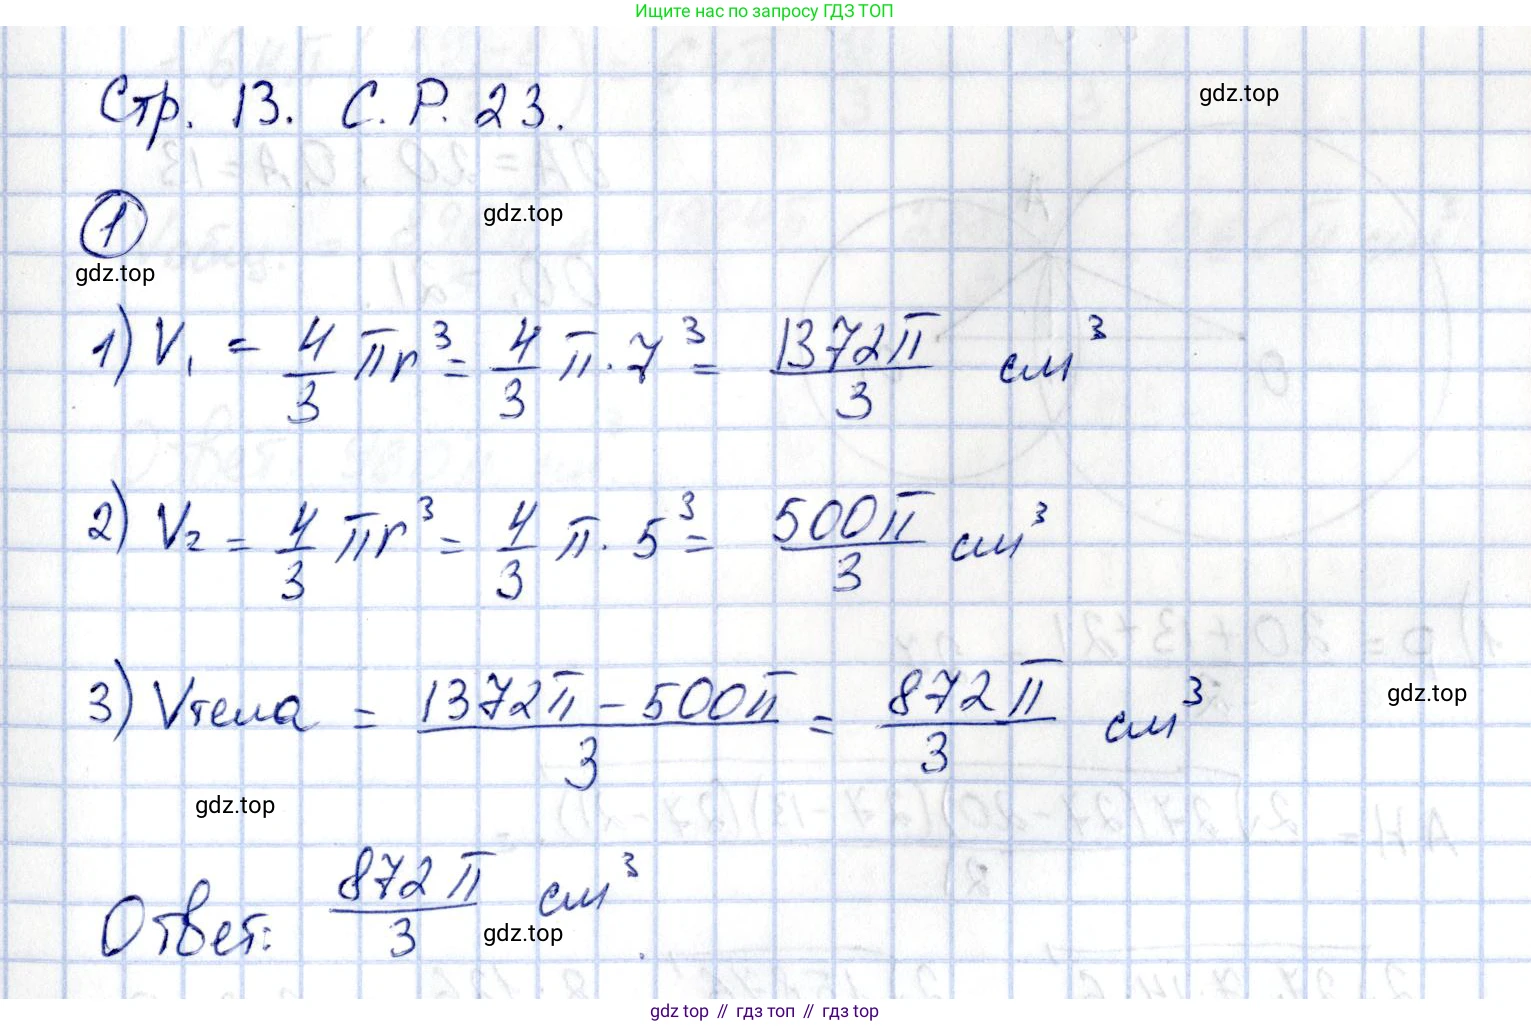 Ищите нас по запросу ГДЗ ТОП
Стр. 13. С. Р. 23.
gdz.top
1
gdz.top
gdz.top
1) V₁ = 4/3 πr³ = 4/3 π · 7³ = 1372π/3 см³
2) V₂ = 4/3 πr³ = 4/3 π · 5³ = 500π/3 см³
3) Vтела = (1372π − 500π)/3 = 872π/3 см³
gdz.top
gdz.top
Ответ: 872π/3 см³.
gdz.top
gdz top // гдз топ // gdz top